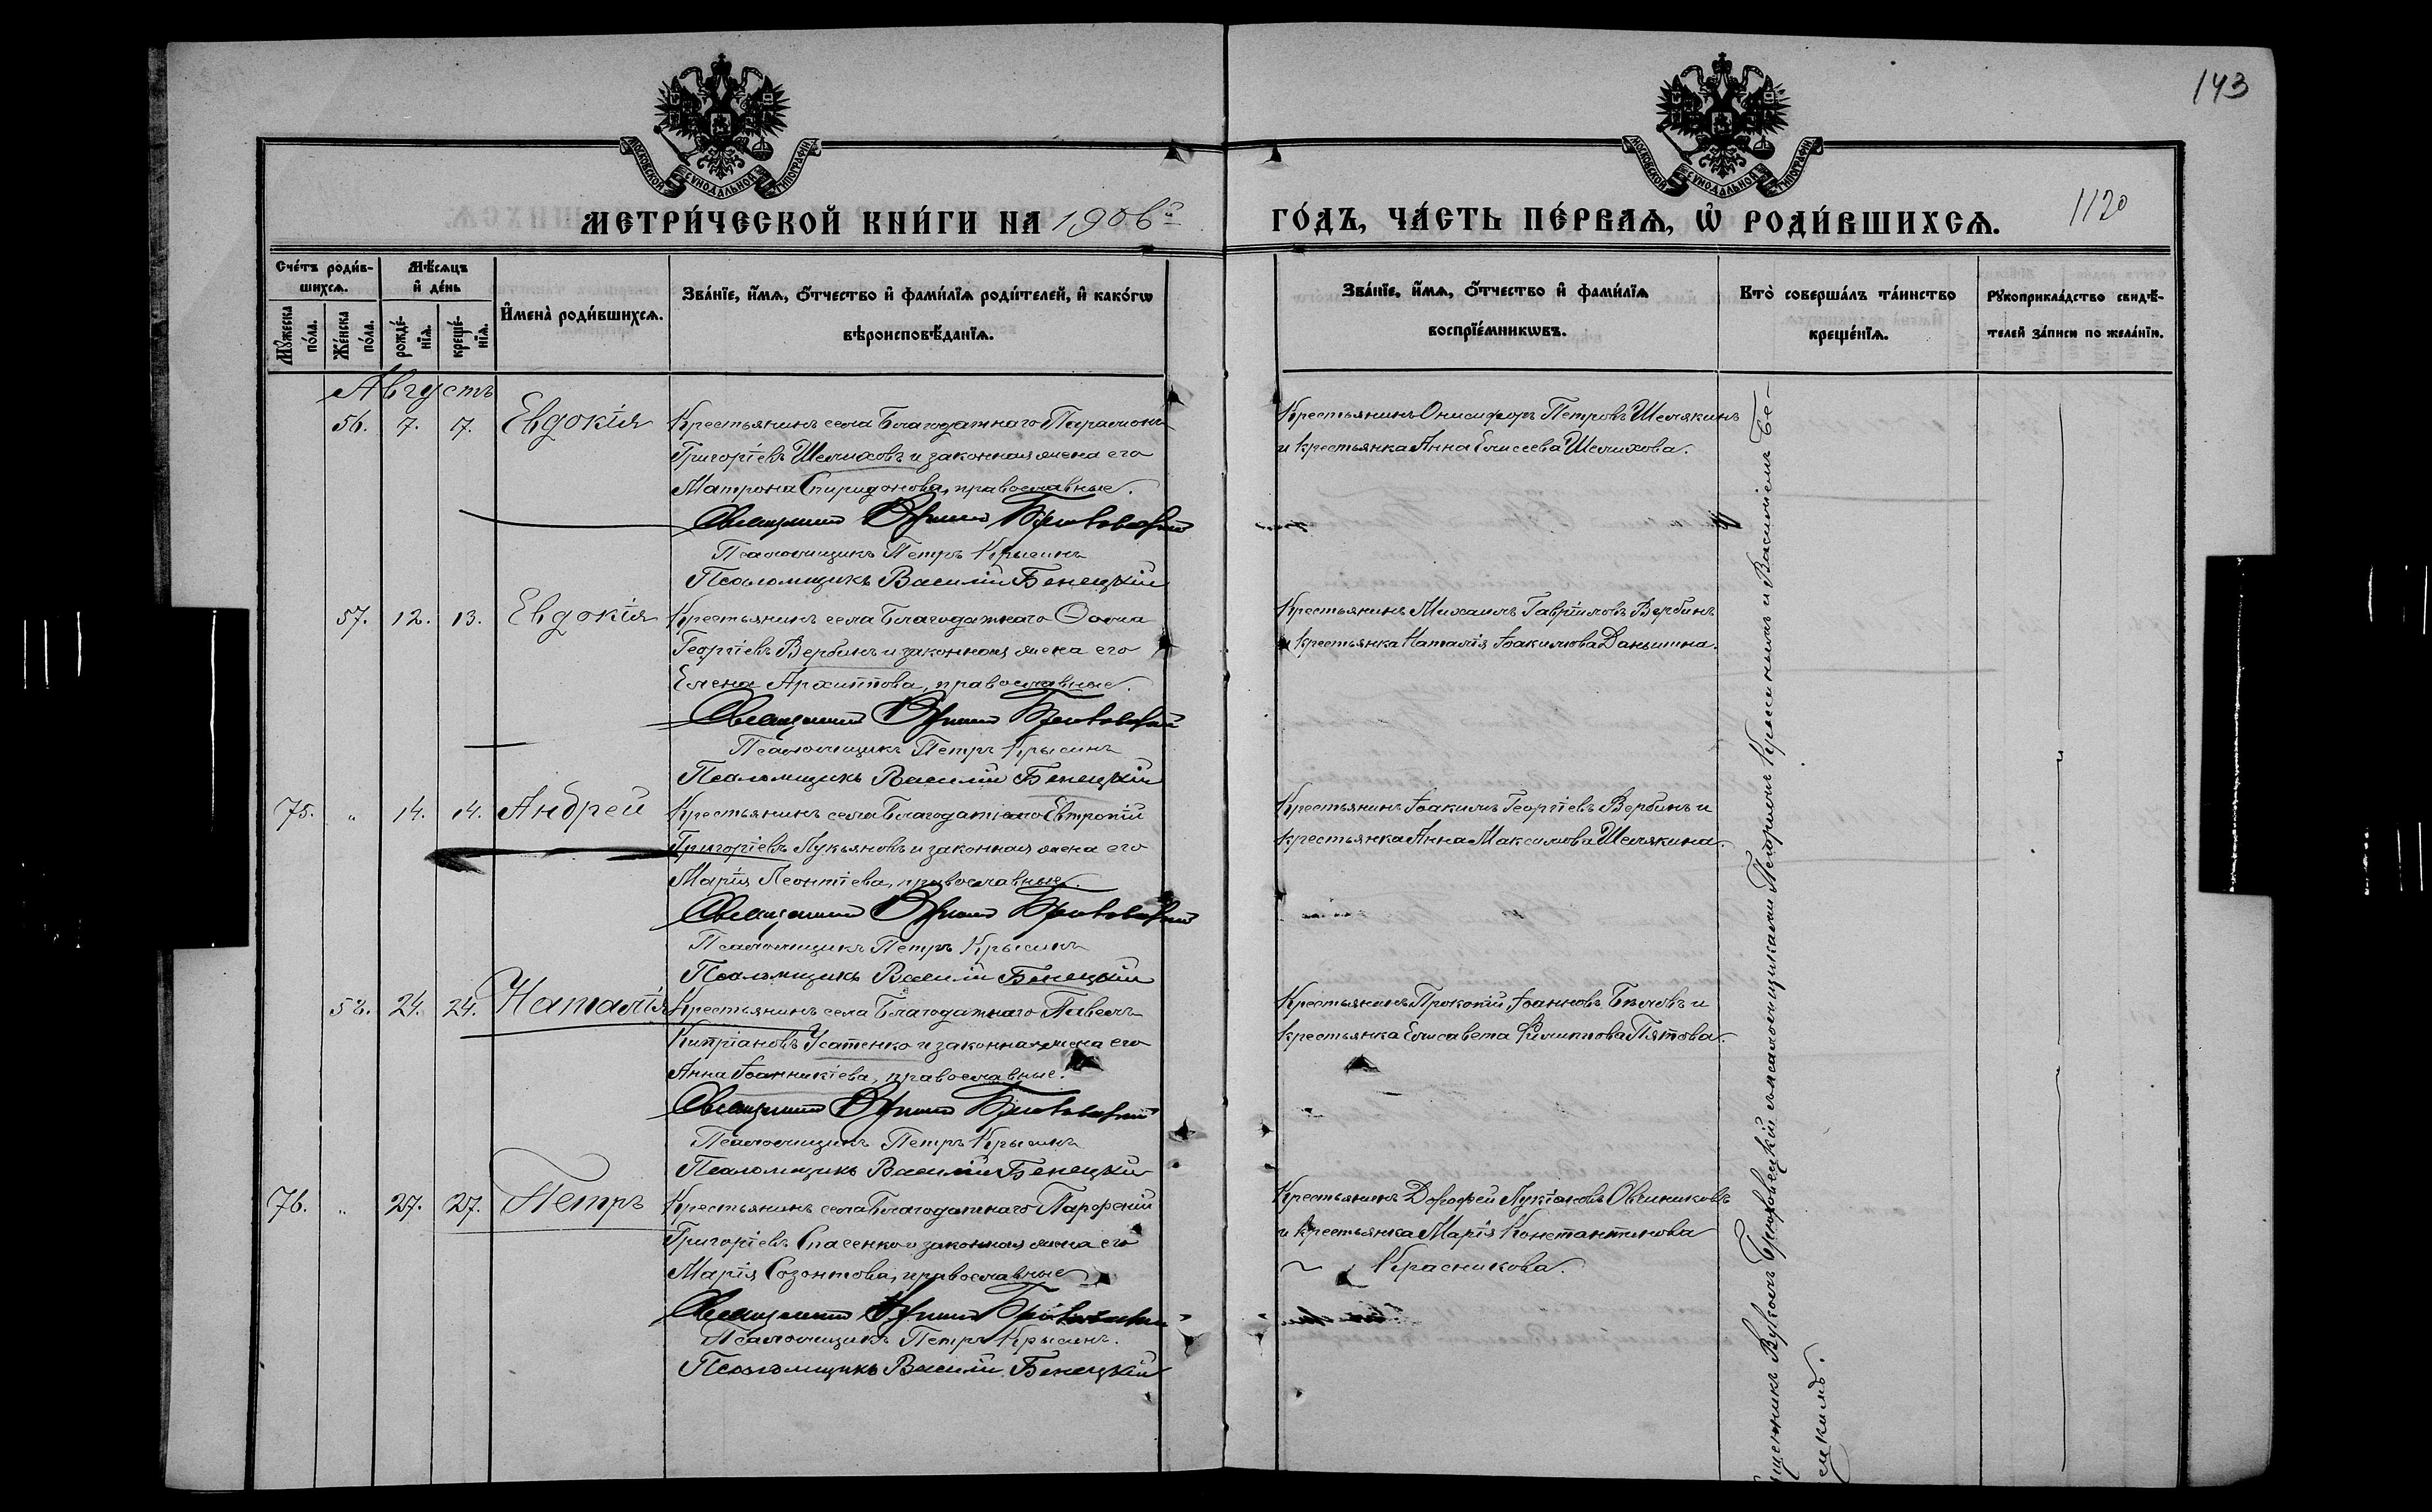 143
1120
МОСКОВСКОЙ СѴНОДАЛЬНОЙ ТИПОГРАФІИ
МОСКОВСКОЙ СѴНОДАЛЬНОЙ ТИПОГРАФІИ
МЕТРИ́ЧЕСКОЙ КНИ́ГИ НА 1906й ГО́ДЪ, ЧА́СТЬ ПЕ́РВАѦ, Ѽ РОДИ́ВШИХСѦ.
Сче́тъ роди́в-
шихсѧ.
Мꙋ́жеска по́ла.
Же́нска по́ла.
Мѣ́сѧцъ
и҆ де́нь
рожде́-
нїѧ.
креще́-
нїѧ.
И҆мена̀ роди́вшихсѧ.
Зва́нїе, и҆́мѧ, ѻ҆́тчество и҆ фами́лїѧ роди́телей, и҆ како́гѡ
вѣроисповѣ́данїѧ.
Зва́нїе, и҆́мѧ, ѻ҆́тчество и҆ фами́лїѧ
воспрїе́мникѡвъ.
Кто̀ соверша́лъ та́инство
креще́нїѧ.
Рꙋкоприкла́дство свидѣ́-
телей за́писи по жела́нїю.
Августъ
56. 7. 7. Евдокія Крестьянинъ села Благодатнаго Парамонъ
Григоріевъ Шелиховъ и законная жена его
Матрона Спиридонова, православные.
Священникъ Вуколъ Бряховецкій
Псаломщикъ Петръ Крысинъ
Псаломщикъ Василій Бенецкій
Крестьянинъ Онисифоръ Петровъ Шелякинъ
и крестьянка Анна Елисеева Шелихова.
57. 12. 13. Евдокія Крестьянинъ села Благодатнаго Ѳома
Георгіевъ Вербинъ и законная жена его
Елена Архиппова, православные.
Священникъ Вуколъ Бряховецкій
Псаломщикъ Петръ Крысинъ
Псаломщикъ Василій Бенецкій
Крестьянинъ Михаилъ Гавріиловъ Вербинъ
и крестьянка Наталія Іоакимова Даньшина.
75. " 14. 14. Андрей Крестьянинъ села Благодатнаго Евтропій
Григоріевъ Лукьяновъ и законная жена его
Марія Леонтіева, православные.
Священникъ Вуколъ Бряховецкій
Псаломщикъ Петръ Крысинъ
Псаломщикъ Василій Бенецкій
Крестьянинъ Іоакимъ Георгіевъ Вербинъ и
крестьянка Анна Максимова Шелякина.
58. 24. 24. Наталія Крестьянинъ села Благодатнаго Павелъ
Кипріановъ Усатенко и законная жена его
Анна Іоанникіева, православные.
Священникъ Вуколъ Бряховецкій
Псаломщикъ Петръ Крысинъ
Псаломщикъ Василій Бенецкій
Крестьянинъ Прокопій Іоанновъ Бѣловъ и
крестьянка Елисавета Филиппова Пятова.
76. " 27. 27. Петръ Крестьянинъ села Благодатнаго Парфеній
Григоріевъ Спасенко и законная жена его
Марія Созонтова, православные
Священникъ Вуколъ Бряховецкій
Псаломщикъ Петръ Крысинъ.
Псаломщикъ Василій Бенецкій
Крестьянинъ Дорофей Лукіановъ Овчиниковъ
и крестьянка Марія Константинова
Красникова.
Священникъ Вуколъ Бряховецкій съ псаломщиками Петромъ Крысинымъ и Василіемъ Бе-
нецкимъ.